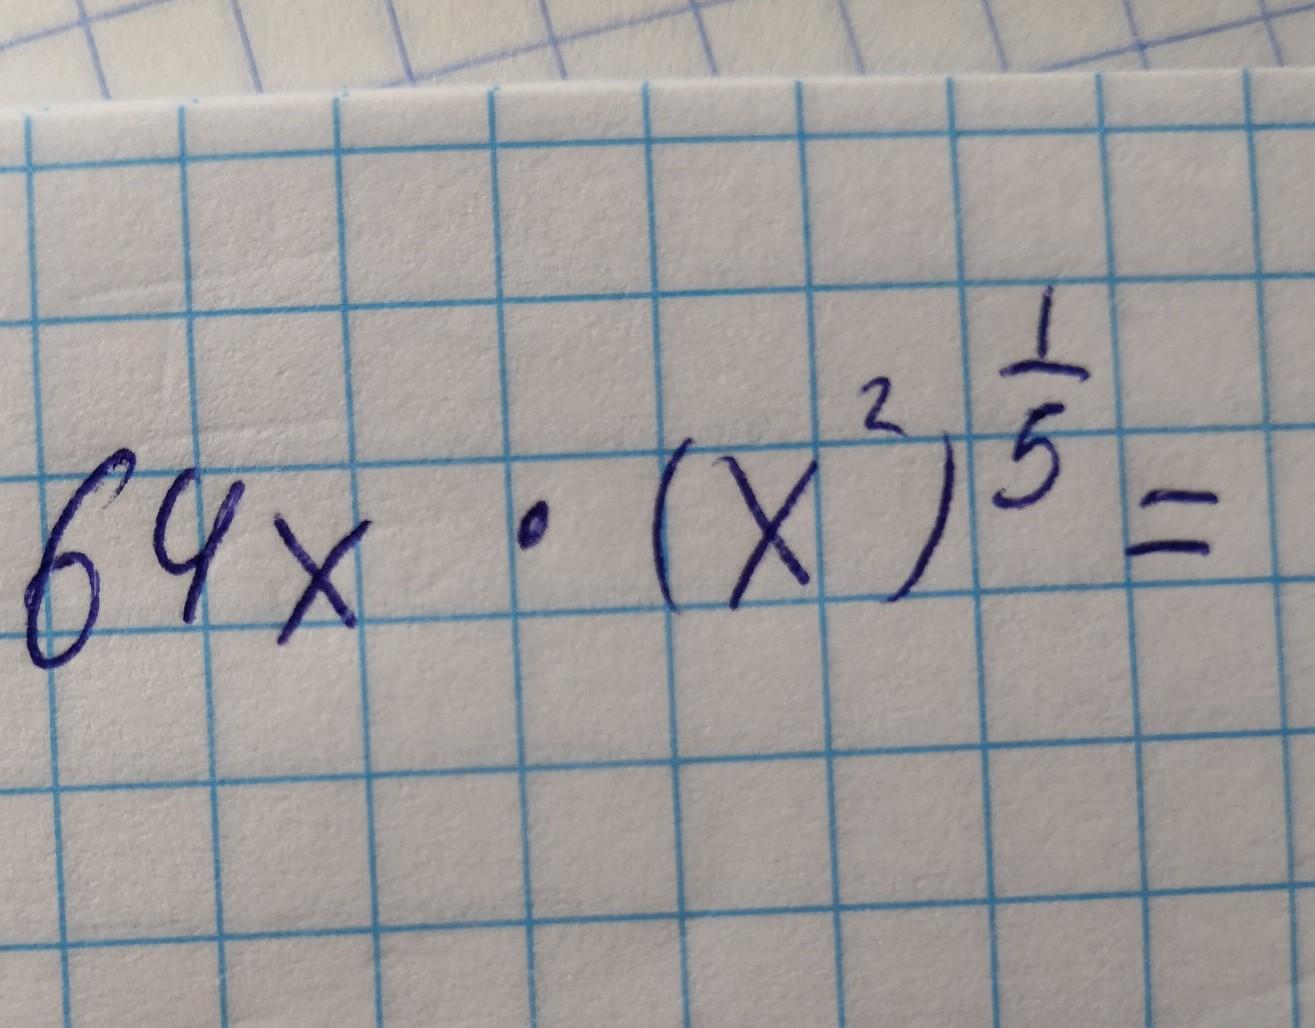 64x · (x²)^(1/5) =